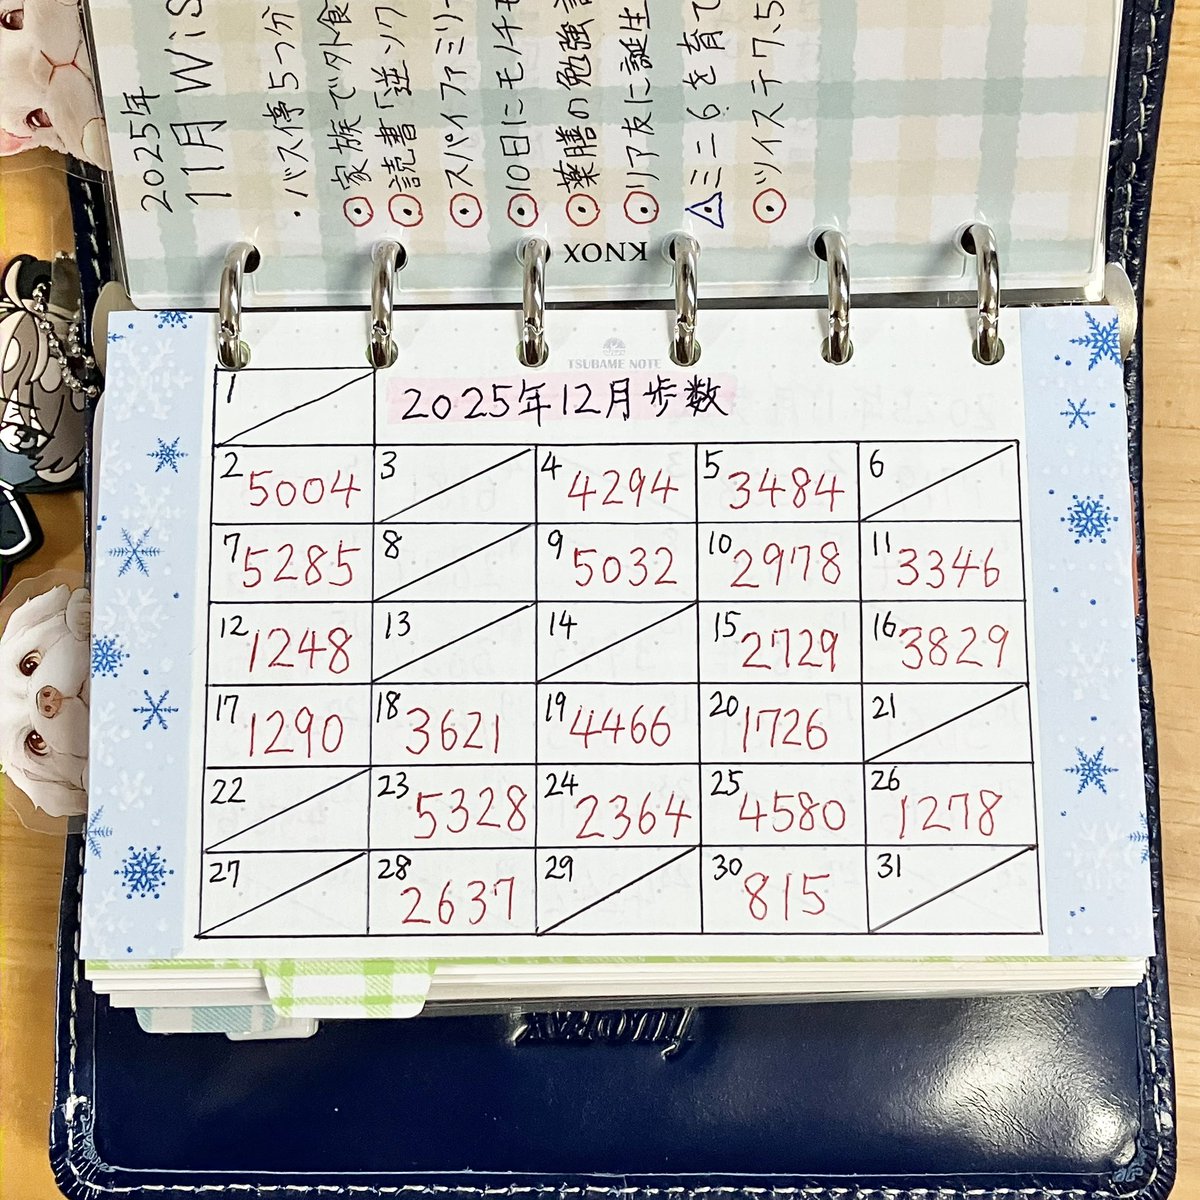 2025年
11月 Wis
・バス停5つ分
家族で外食
読書「逆ソク
スパイファミリー
10日にモノチモ
薬膳の勉強
リア友に誕生
ミニ6を育て
ツイステ7.5
KNOX
TSUBAME NOTE
1 2025年12月歩数
2 5004 3 4 4294 5 3484 6
7 5285 8 9 5032 10 2978 11 3346
12 1248 13 14 15 2729 16 3829
17 1290 18 3621 19 4466 20 1726 21
22 23 5328 24 2364 25 4580 26 1278
27 28 2637 29 30 815 31